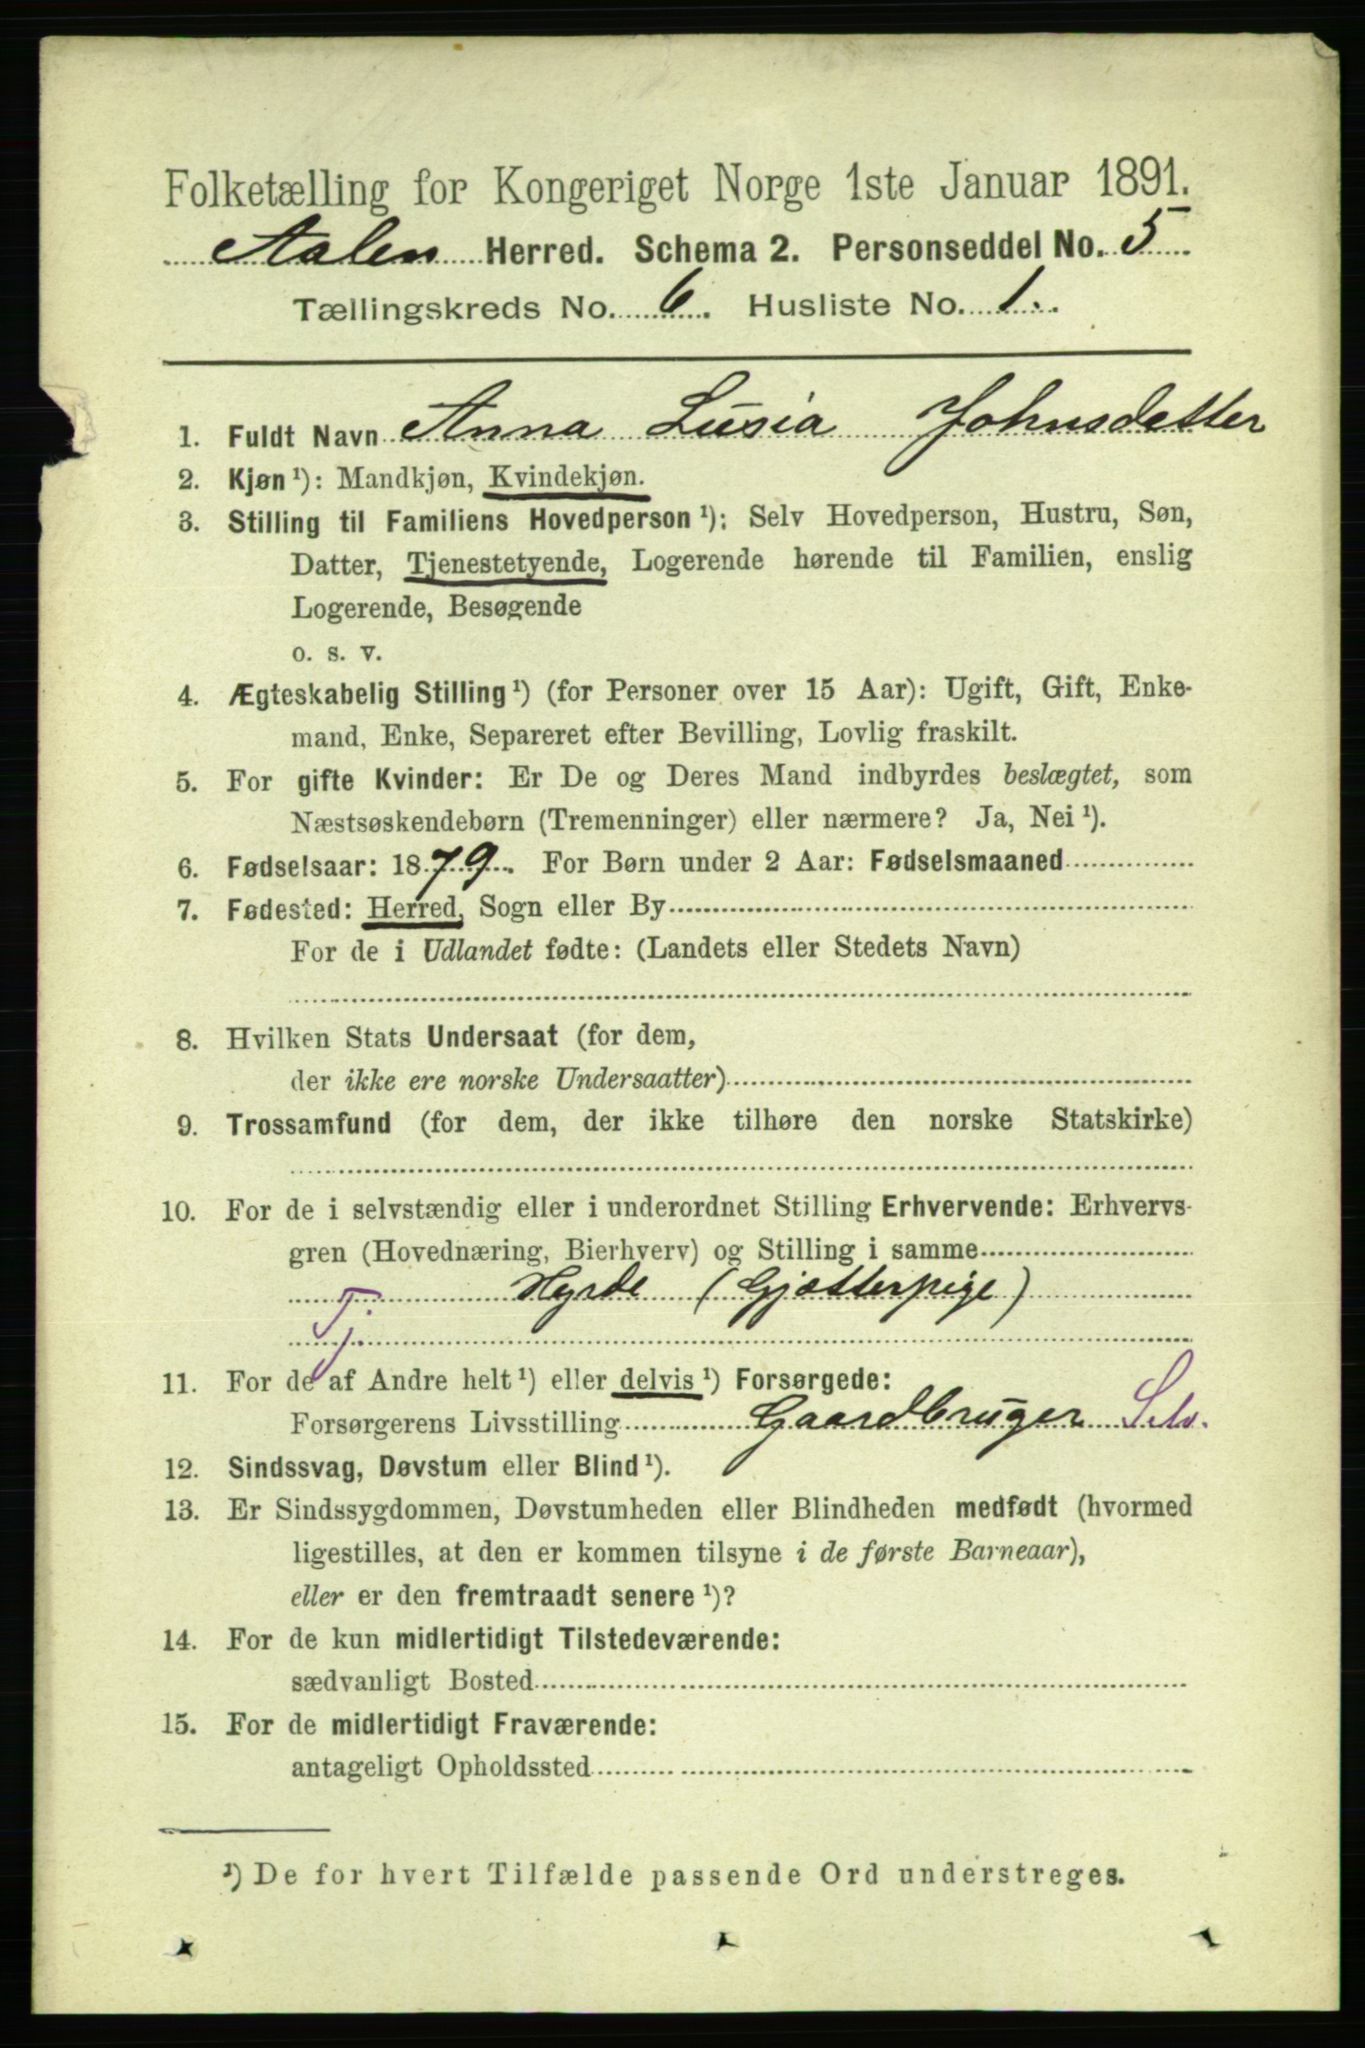 Folketælling for Kongeriget Norge 1ste Januar 1891.
Aalen Herred. Schema 2. Personseddel No. 5
Tællingskreds No. 6. Husliste No. 1.
1. Fuldt Navn Anna Lusia Johnsdatter
2. Kjøn ¹): Mandkjøn, Kvindekjøn.
3. Stilling til Familiens Hovedperson ¹): Selv Hovedperson, Hustru, Søn,
Datter, Tjenestetyende, Logerende hørende til Familien, enslig
Logerende, Besøgende
o. s. v.
4. Ægteskabelig Stilling ¹) (for Personer over 15 Aar): Ugift, Gift, Enke-
mand, Enke, Separeret efter Bevilling, Lovlig fraskilt.
5. For gifte Kvinder: Er De og Deres Mand indbyrdes beslægtet, som
Næstsøskendebørn (Tremenninger) eller nærmere? Ja, Nei ¹).
6. Fødselsaar: 1879. For Børn under 2 Aar: Fødselsmaaned
7. Fødested: Herred, Sogn eller By
For de i Udlandet fødte: (Landets eller Stedets Navn)
8. Hvilken Stats Undersaat (for dem,
der ikke ere norske Undersaatter)
9. Trossamfund (for dem, der ikke tilhøre den norske Statskirke)
10. For de i selvstændig eller i underordnet Stilling Erhvervende: Erhvervs-
gren (Hovednæring, Bierhverv) og Stilling i samme
Hyrde (Gjætterpige)
Tj.
11. For de af Andre helt ¹) eller delvis ¹) Forsørgede:
Forsørgerens Livsstilling Gaardbruger Selv.
12. Sindssvag, Døvstum eller Blind ¹).
13. Er Sindssygdommen, Døvstumheden eller Blindheden medfødt (hvormed
ligestilles, at den er kommen tilsyne i de første Barneaar),
eller er den fremtraadt senere ¹)?
14. For de kun midlertidigt Tilstedeværende:
sædvanligt Bosted
15. For de midlertidigt Fraværende:
antageligt Opholdssted
¹) De for hvert Tilfælde passende Ord understreges.